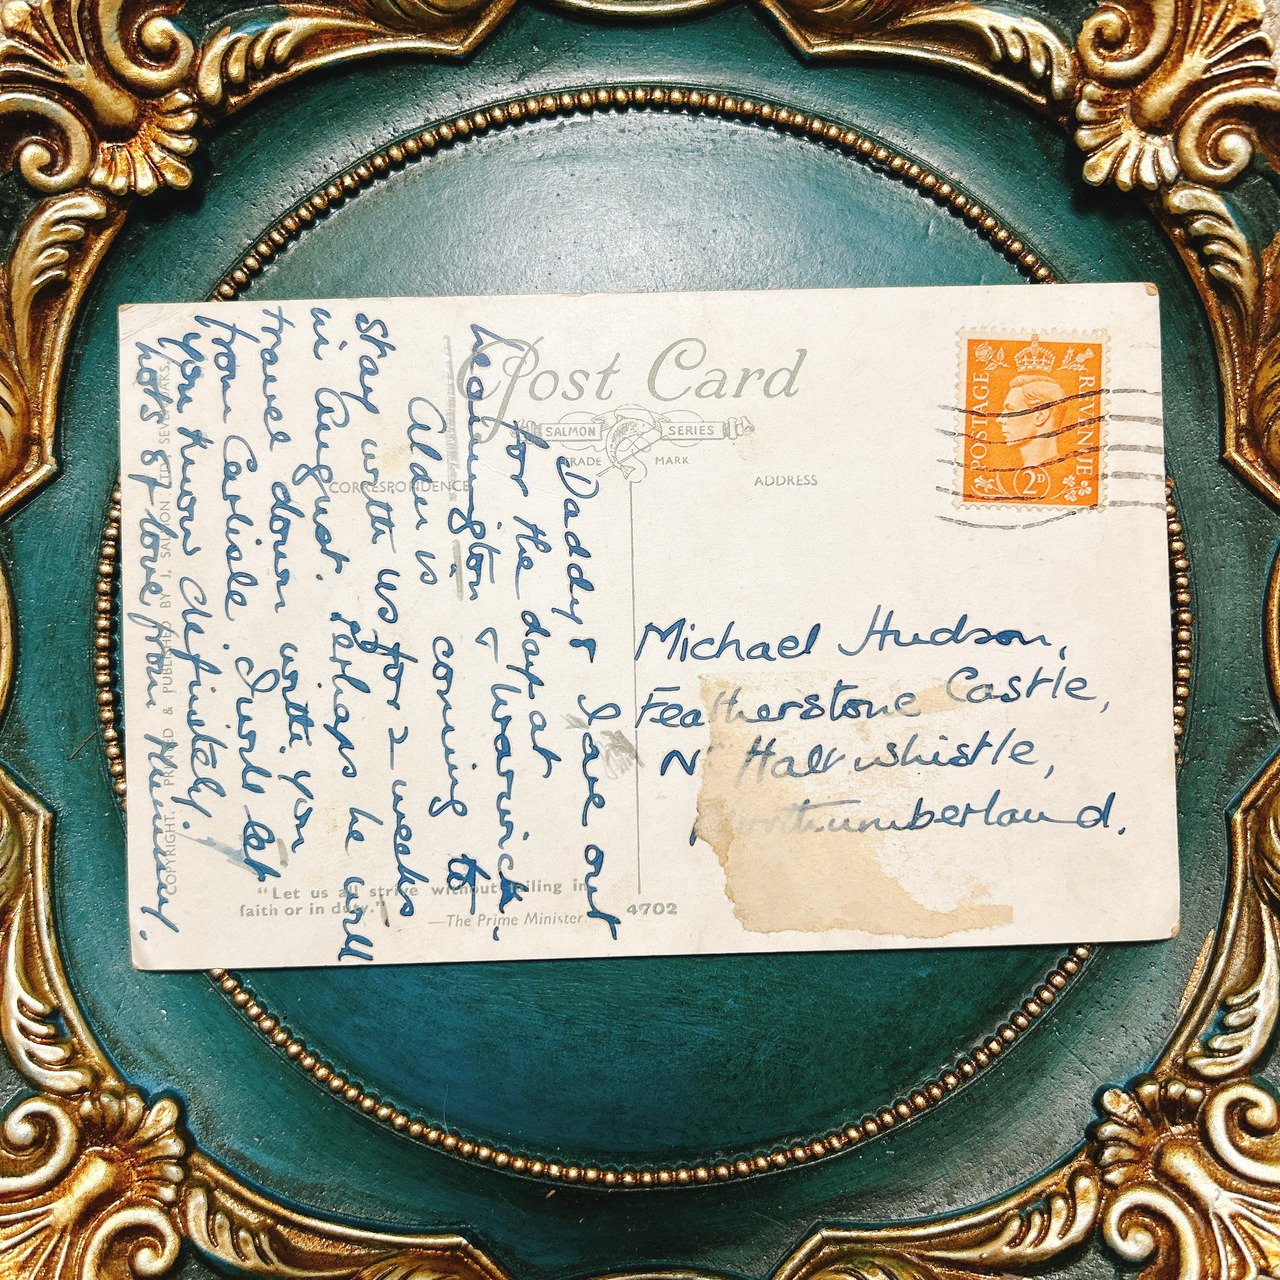 Post Card
SALMON SERIES
TRADE MARK
CORRESPONDENCE
ADDRESS
POSTAGE REVENUE
2D
Daddy & I are out
for the day at
Leamington & Warwick.
Alda is coming to
stay with us for 2 weeks
in August. Perhaps he will
travel down with you
from Carlisle. I will let
you know definitely.
hots of love from Mummy.
Michael Hudson,
Featherstone Castle,
Nr Haltwhistle,
Northumberland.
"Let us all strive without failing in
faith or in duty."
—The Prime Minister.
4702
COPYRIGHT. PRINTED & PUBLISHED BY J. SALMON LTD. SEVENOAKS.